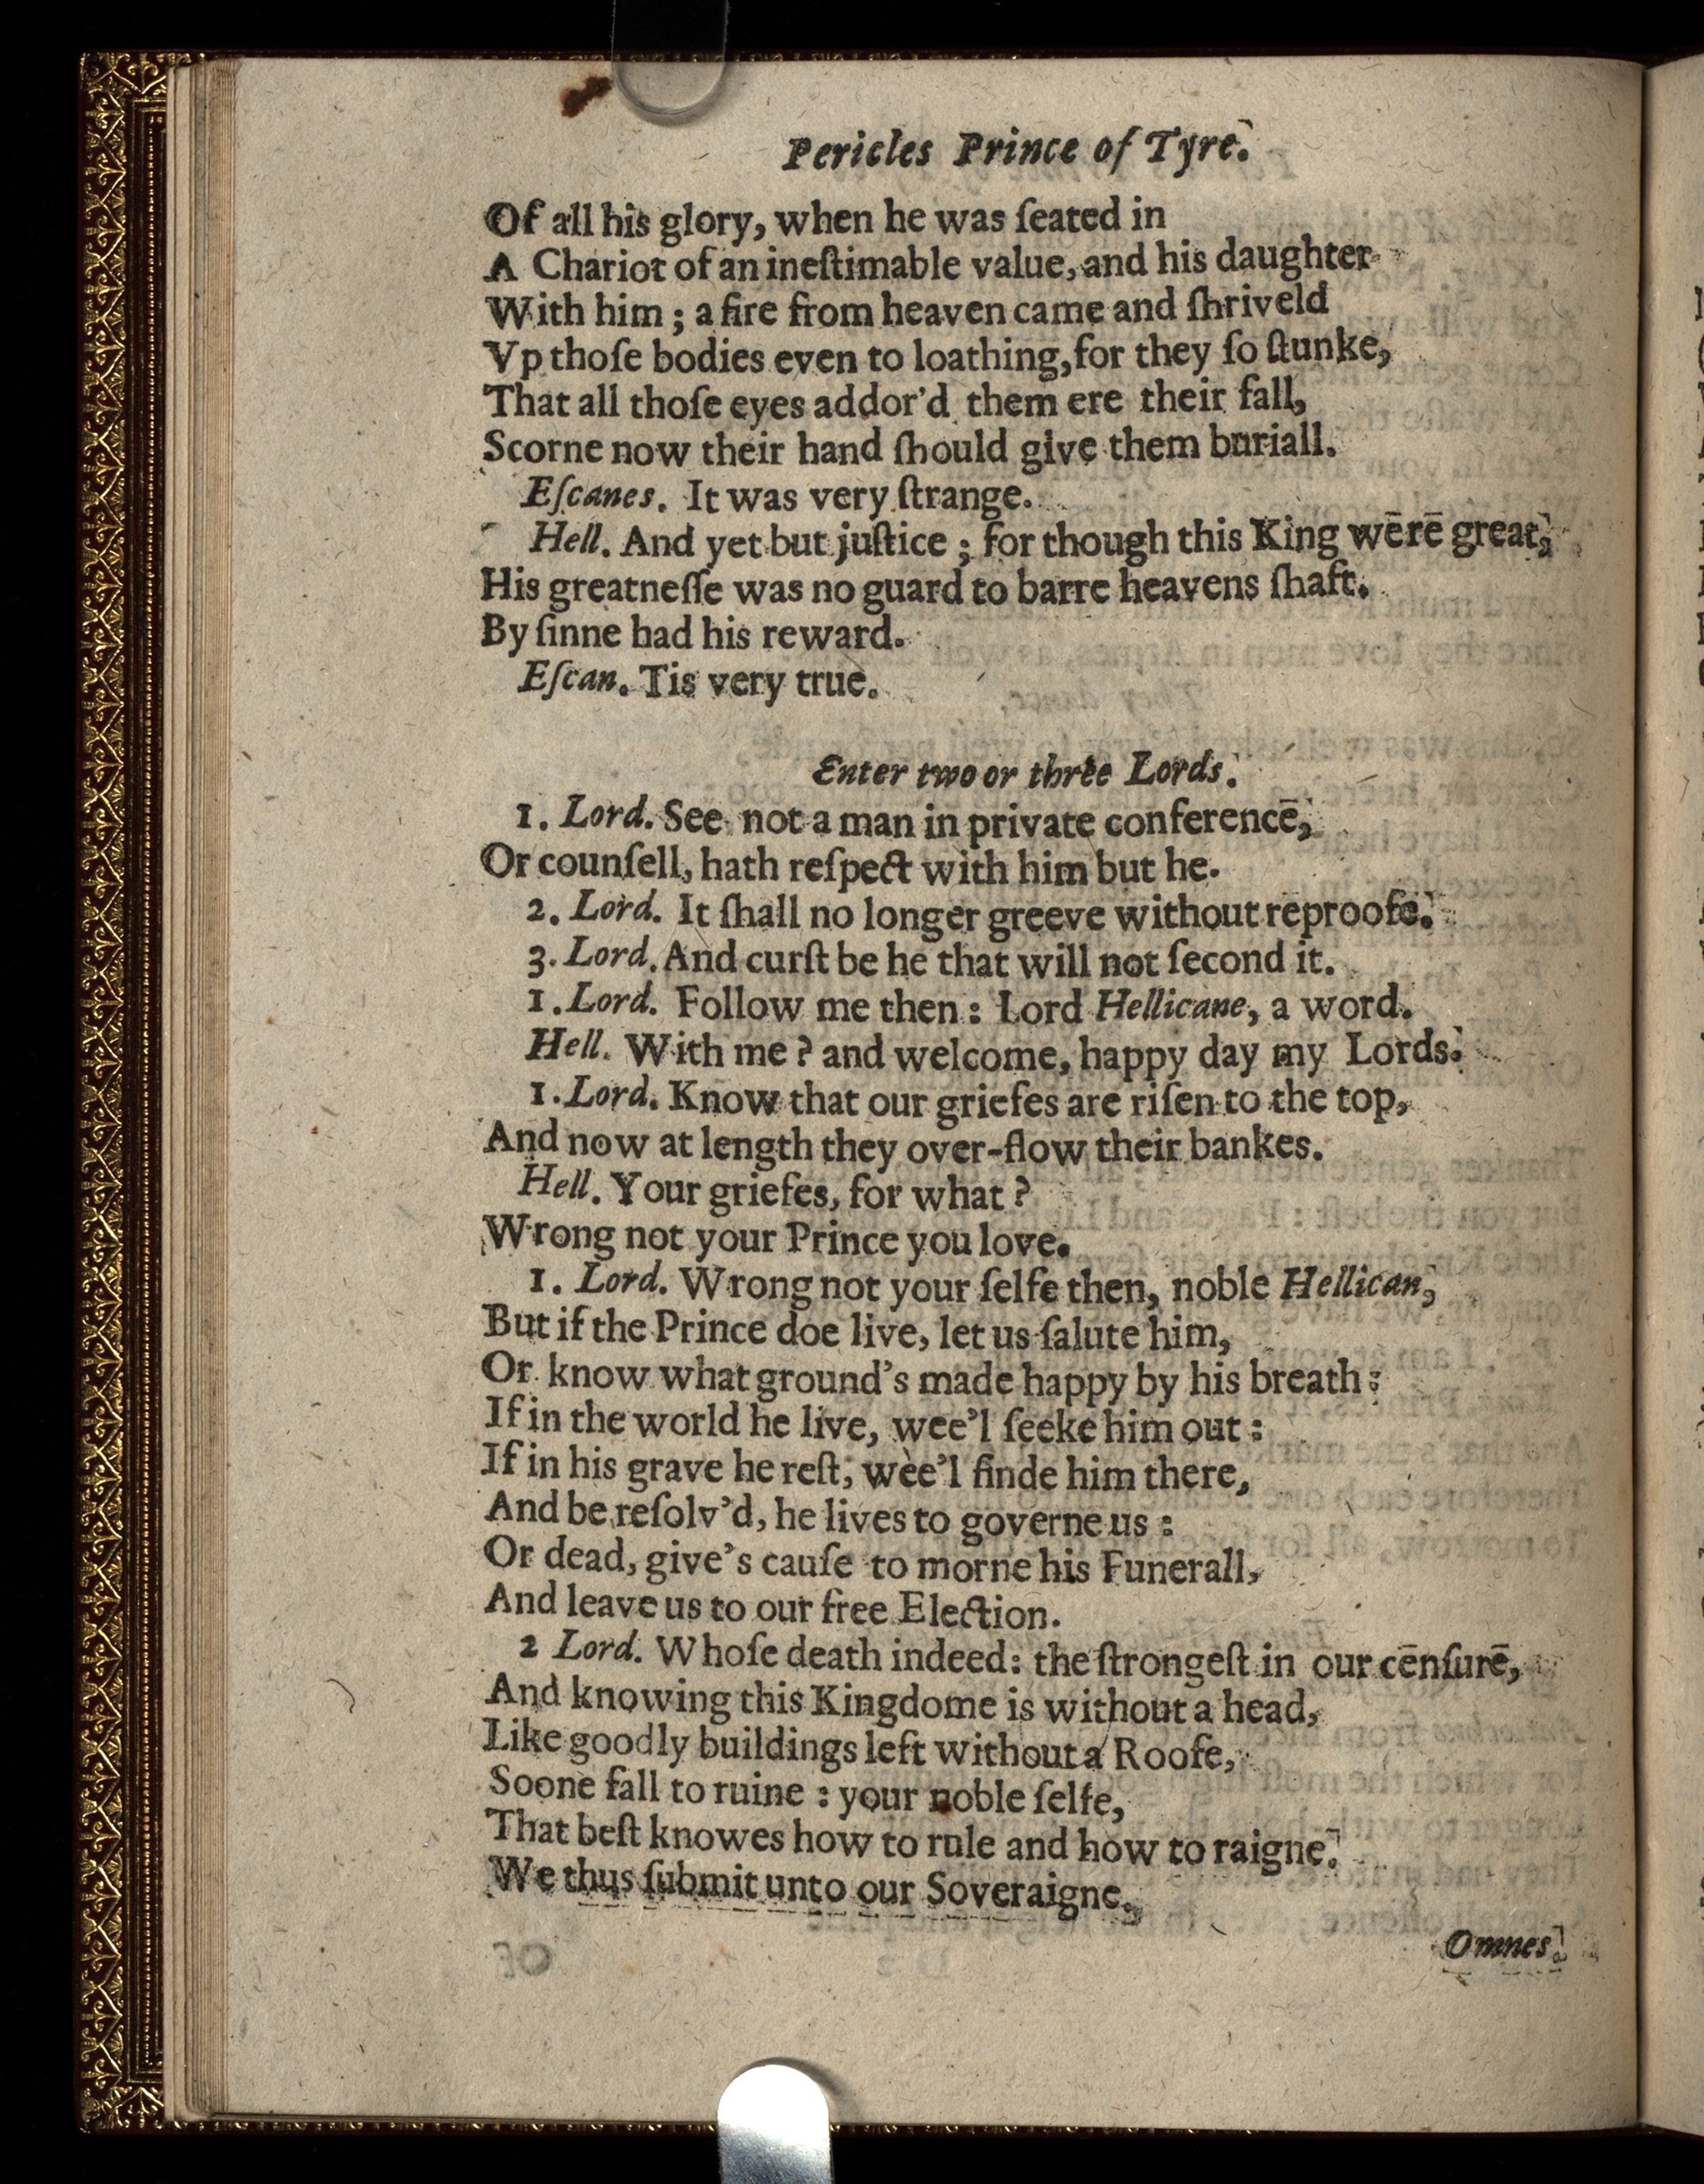 Pericles Prince of Tyre.
Of all his glory, when he was ſeated in
A Chariot of an ineſtimable value, and his daughter
With him ; a fire from heaven came and ſhriveld
Vp thoſe bodies even to loathing, for they ſo ſtunke,
That all thoſe eyes addor'd them ere their fall,
Scorne now their hand ſhould give them buriall.
Eſcanes. It was very ſtrange.
Hell. And yet but juſtice ; for though this King wērē great,
His greatneſſe was no guard to barre heavens ſhaft.
By ſinne had his reward.
Eſcan. Tis very true.
Enter two or three Lords.
1. Lord. See not a man in private conferencē,
Or counſell, hath reſpect with him but he.
2. Lord. It ſhall no longer greeve without reproofe.
3. Lord. And curſt be he that will not ſecond it.
1. Lord. Follow me then : Lord Hellicane, a word.
Hell. With me ? and welcome, happy day my Lords.
1. Lord. Know that our griefes are riſen to the top,
And now at length they over-flow their bankes.
Hell. Your griefes, for what ?
Wrong not your Prince you love.
1. Lord. Wrong not your ſelfe then, noble Hellican,
But if the Prince doe live, let us ſalute him,
Or know what ground's made happy by his breath :
If in the world he live, wee'l ſeeke him out :
If in his grave he reſt, wee'l finde him there,
And be reſolv'd, he lives to governe us :
Or dead, give's cauſe to morne his Funerall,
And leave us to our free Election.
2 Lord. Whoſe death indeed : the ſtrongeſt in our cēnſurē,
And knowing this Kingdome is without a head,
Like goodly buildings left without a Roofe,
Soone fall to ruine : your noble ſelfe,
That beſt knowes how to rule and how to raigne.
We thus ſubmit unto our Soveraigne.
Omnes.